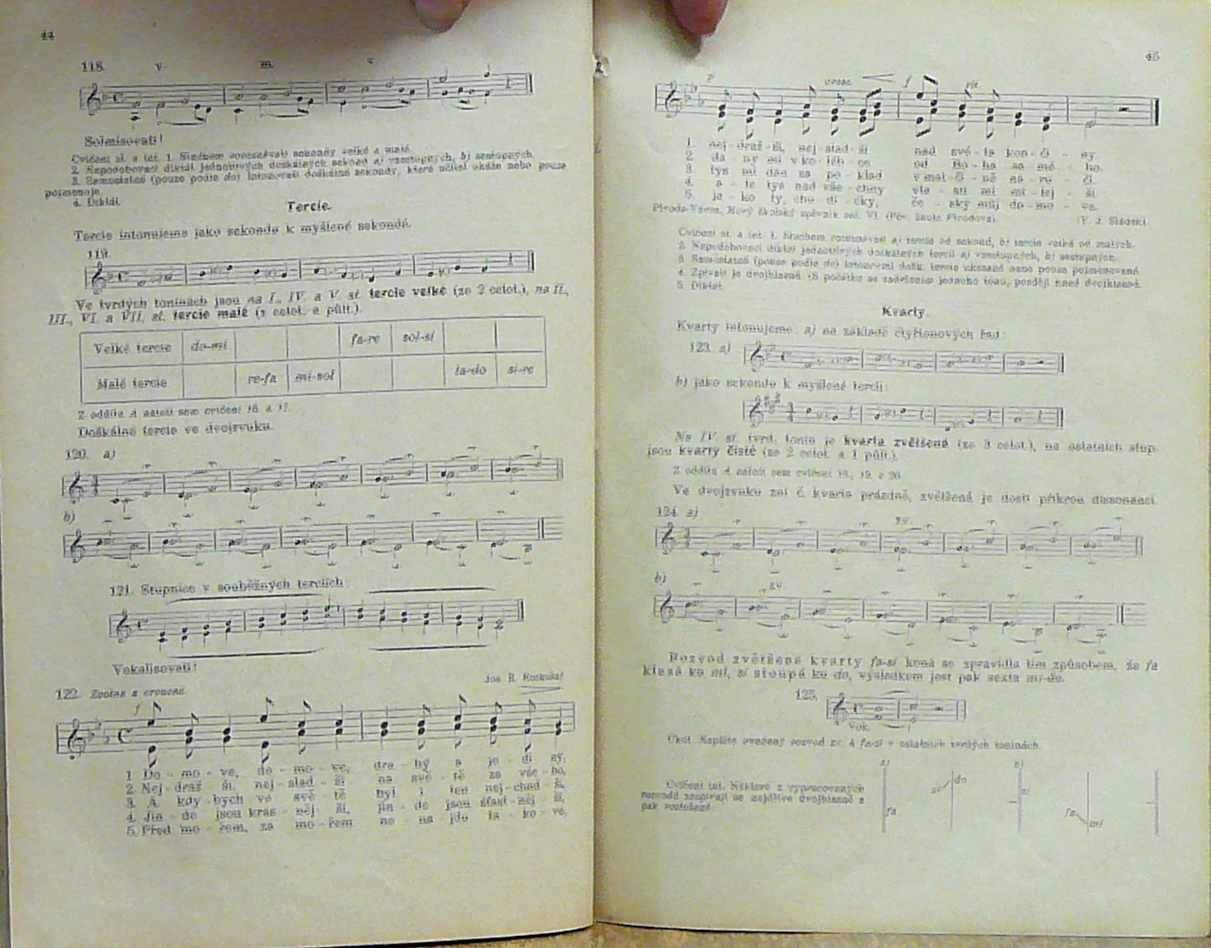 44
118.
v
m.
v
Solmisovati!
Cvičení sl. a int. 1. Sluchem rozeznávati sekundy velké a malé.
2. Napodobovací diktát jednotlivých doškálných sekund a) vzestupných, b) sestupných.
3. Samostatně (pouze podle do) intonovati doškálné sekundy, které učitel ukáže nebo pouze
pojmenuje.
4. Diktát.
Tercie.
Tercie intonujeme jako sekundu k myšlené sekundě.
119.
Ve tvrdých toninách jsou na I., IV. a V. st. tercie velké (ze 2 celot.), na II.,
III., VI. a VII. st. tercie malé (z celot. a půlt.).
Velké tercie do-mi fa-re sol-si
Malé tercie re-fa mi-sol la-do si-re
Z oddílu A náleží sem cvičení 16. a 17.
Doškálné tercie ve dvojzvuku.
120. a)
b)
121. Stupnice v souběžných terciích:
Vokalisovati!
122. Zvolna a vroucně.
Jos. R.
f
1. Do - mo - ve, do - mo - ve, dra - hý a je - di - ný,
2. Nej - draž - ší, nej - slad - ší na svě - tě ze vše - ho,
3. A kdy - bych ve svě - tě byl i ten nej - chud - ší,
4. Jin - de jsou krás - něj - ší, jin - de jsou šťast - něj - ší,
5. Před mo - řem, za mo - řem ne - na - jdu ta - ko - vé,
45
p
cresc.
f
rit.
1. nej - draž - ší, nej - slad - ší nad svě - ta kon - či - ny.
2. da - ný od v ko - léb - ce od Bo - ha sa - mé - ho.
3. tys mi dán za po - klad v mat - či - ně ná - ru - čí.
4. a - le tys nade vše - chny vla - sti mi mi - lej - ší.
5. ja - ko ty, chu - di - čký, če - ský můj do - mo - ve.
(V. J. Sládek).
Cvičení sl. a int. 1. Sluchem rozeznávati a) tercie od sekund, b) tercie velké od malých.
2. Napodobovací diktát jednotlivých doškálných tercií a) vzestupných, b) sestupných.
3. Samostatně (pouze podle do) intonovati došk. tercie ukázané nebo pouze pojmenované.
4. Zpívati je dvojhlasně (S počátku se zadržením jednoho tónu, později hned dvojhlasně).
5. Diktát.
Kvarty.
Kvarty intonujeme: a) na základě čtyřtónových řad:
123. a)
b) jako sekundu k myšlené tercii:
Na IV. st. tvrd. tonin je kvarta zvětšená (ze 3 celot.), na ostatních stup.
jsou kvarty čisté (ze 2 celot. a 1 půlt.).
Z oddílu A náleží sem cvičení 18., 19. a 20.
Ve dvojzvuku zní č. kvarta prázdně, zvětšená je dosti příkrou dissonancí.
124. a)
zv.
b)
zv.
Rozvod zvětšené kvarty fa-si koná se zpravidla tím způsobem, že fa
klesá ku mi, si stoupá ku do, výsledkem jest pak sexta mi-do.
125.
Vok.
Úkol. Napište uvedený rozvod zv. 4 fa-si v ostatních tvrdých toninách.
Cvičení int. Některé z vypracovaných
rozvodů zazpívají se nejdříve dvojhlasně a
pak rozloženě.
a)
fa
si
do
b)
si
fa
mi